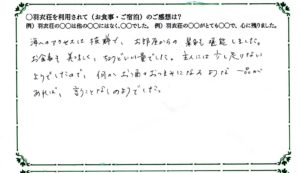 ○羽衣荘を利用されて（お食事・ご宿泊）のご感想は？
例）羽衣荘の○○は他の○○にはなく、○○でした。 例）羽衣荘の○○がとても○○で、心に残りました。
海へのアクセスは抜群で、お部屋からの景色も堪能しました。
お食事も美味しく、ちょうどいい量でした。主人には少し足りない
ようでしたので、何かお酒のおつまみになるような一品が
あれば、言うことなしのようでした。